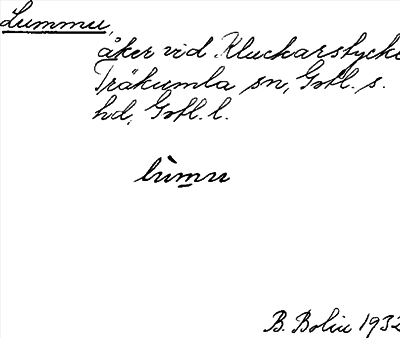 Lummu,
åker vid Kluckarstycke
Träkumla sn, Gotl. s.
hd, Gotl. l.
lùmu
B. Bolin 1932